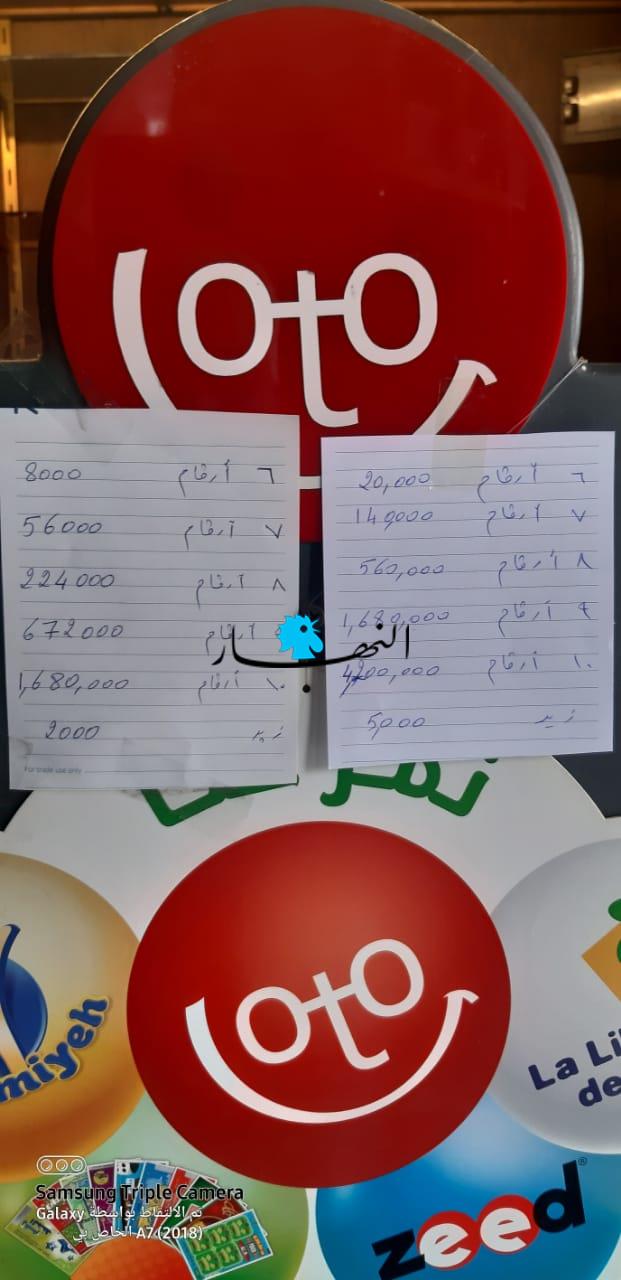 loto
8000 ٦ أرقام
56000 ٧ أرقام
224000 ٨ أرقام
672000 أرقام
1,680,000 ١٠ أرقام
2000 زيد
For trade use only
20,000 ٦ أرقام
140,000 ٧ أرقام
560,000 ٨ أرقام
1,680,000 ٩ أرقام
4,200,000 ١٠ أرقام
5,000 زيد
النهار
loto
miyeh
La Li
de
zeed®
Samsung Triple Camera
تم الالتقاط بواسطة Galaxy
A7 (2018) الخاص بي